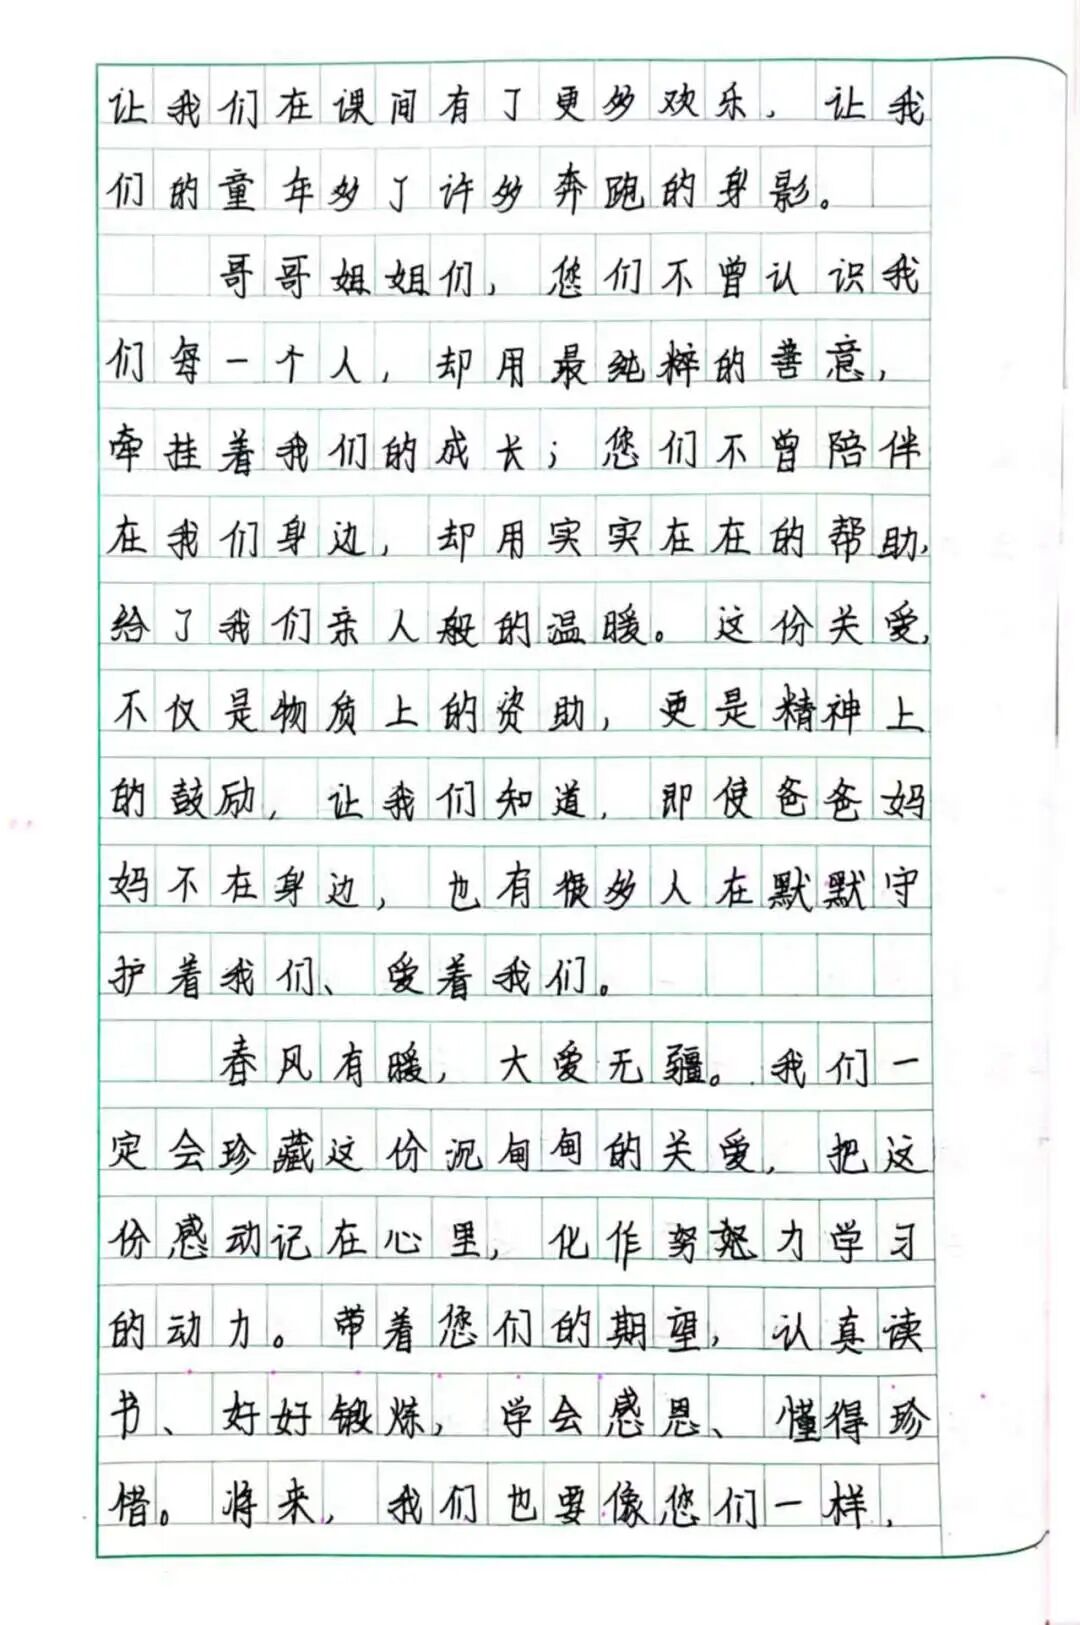 让我们在课间有了更多欢乐，让我
们的童年多了许多奔跑的身影。
哥哥姐姐们，您们不曾认识我
们每一个人，却用最纯粹的善意，
牵挂着我们的成长；您们不曾陪伴
在我们身边，却用实实在在的帮助，
给了我们亲人般的温暖。这份关爱，
不仅是物质上的资助，更是精神上
的鼓励，让我们知道，即使爸爸妈
妈不在身边，也有很多人在默默守
护着我们、爱着我们。
春风有暖，大爱无疆。我们一
定会珍藏这份沉甸甸的关爱，把这
份感动记在心里，化作努力学习
的动力。带着您们的期望，认真读
书、好好锻炼，学会感恩、懂得珍
惜。将来，我们也要像您们一样，